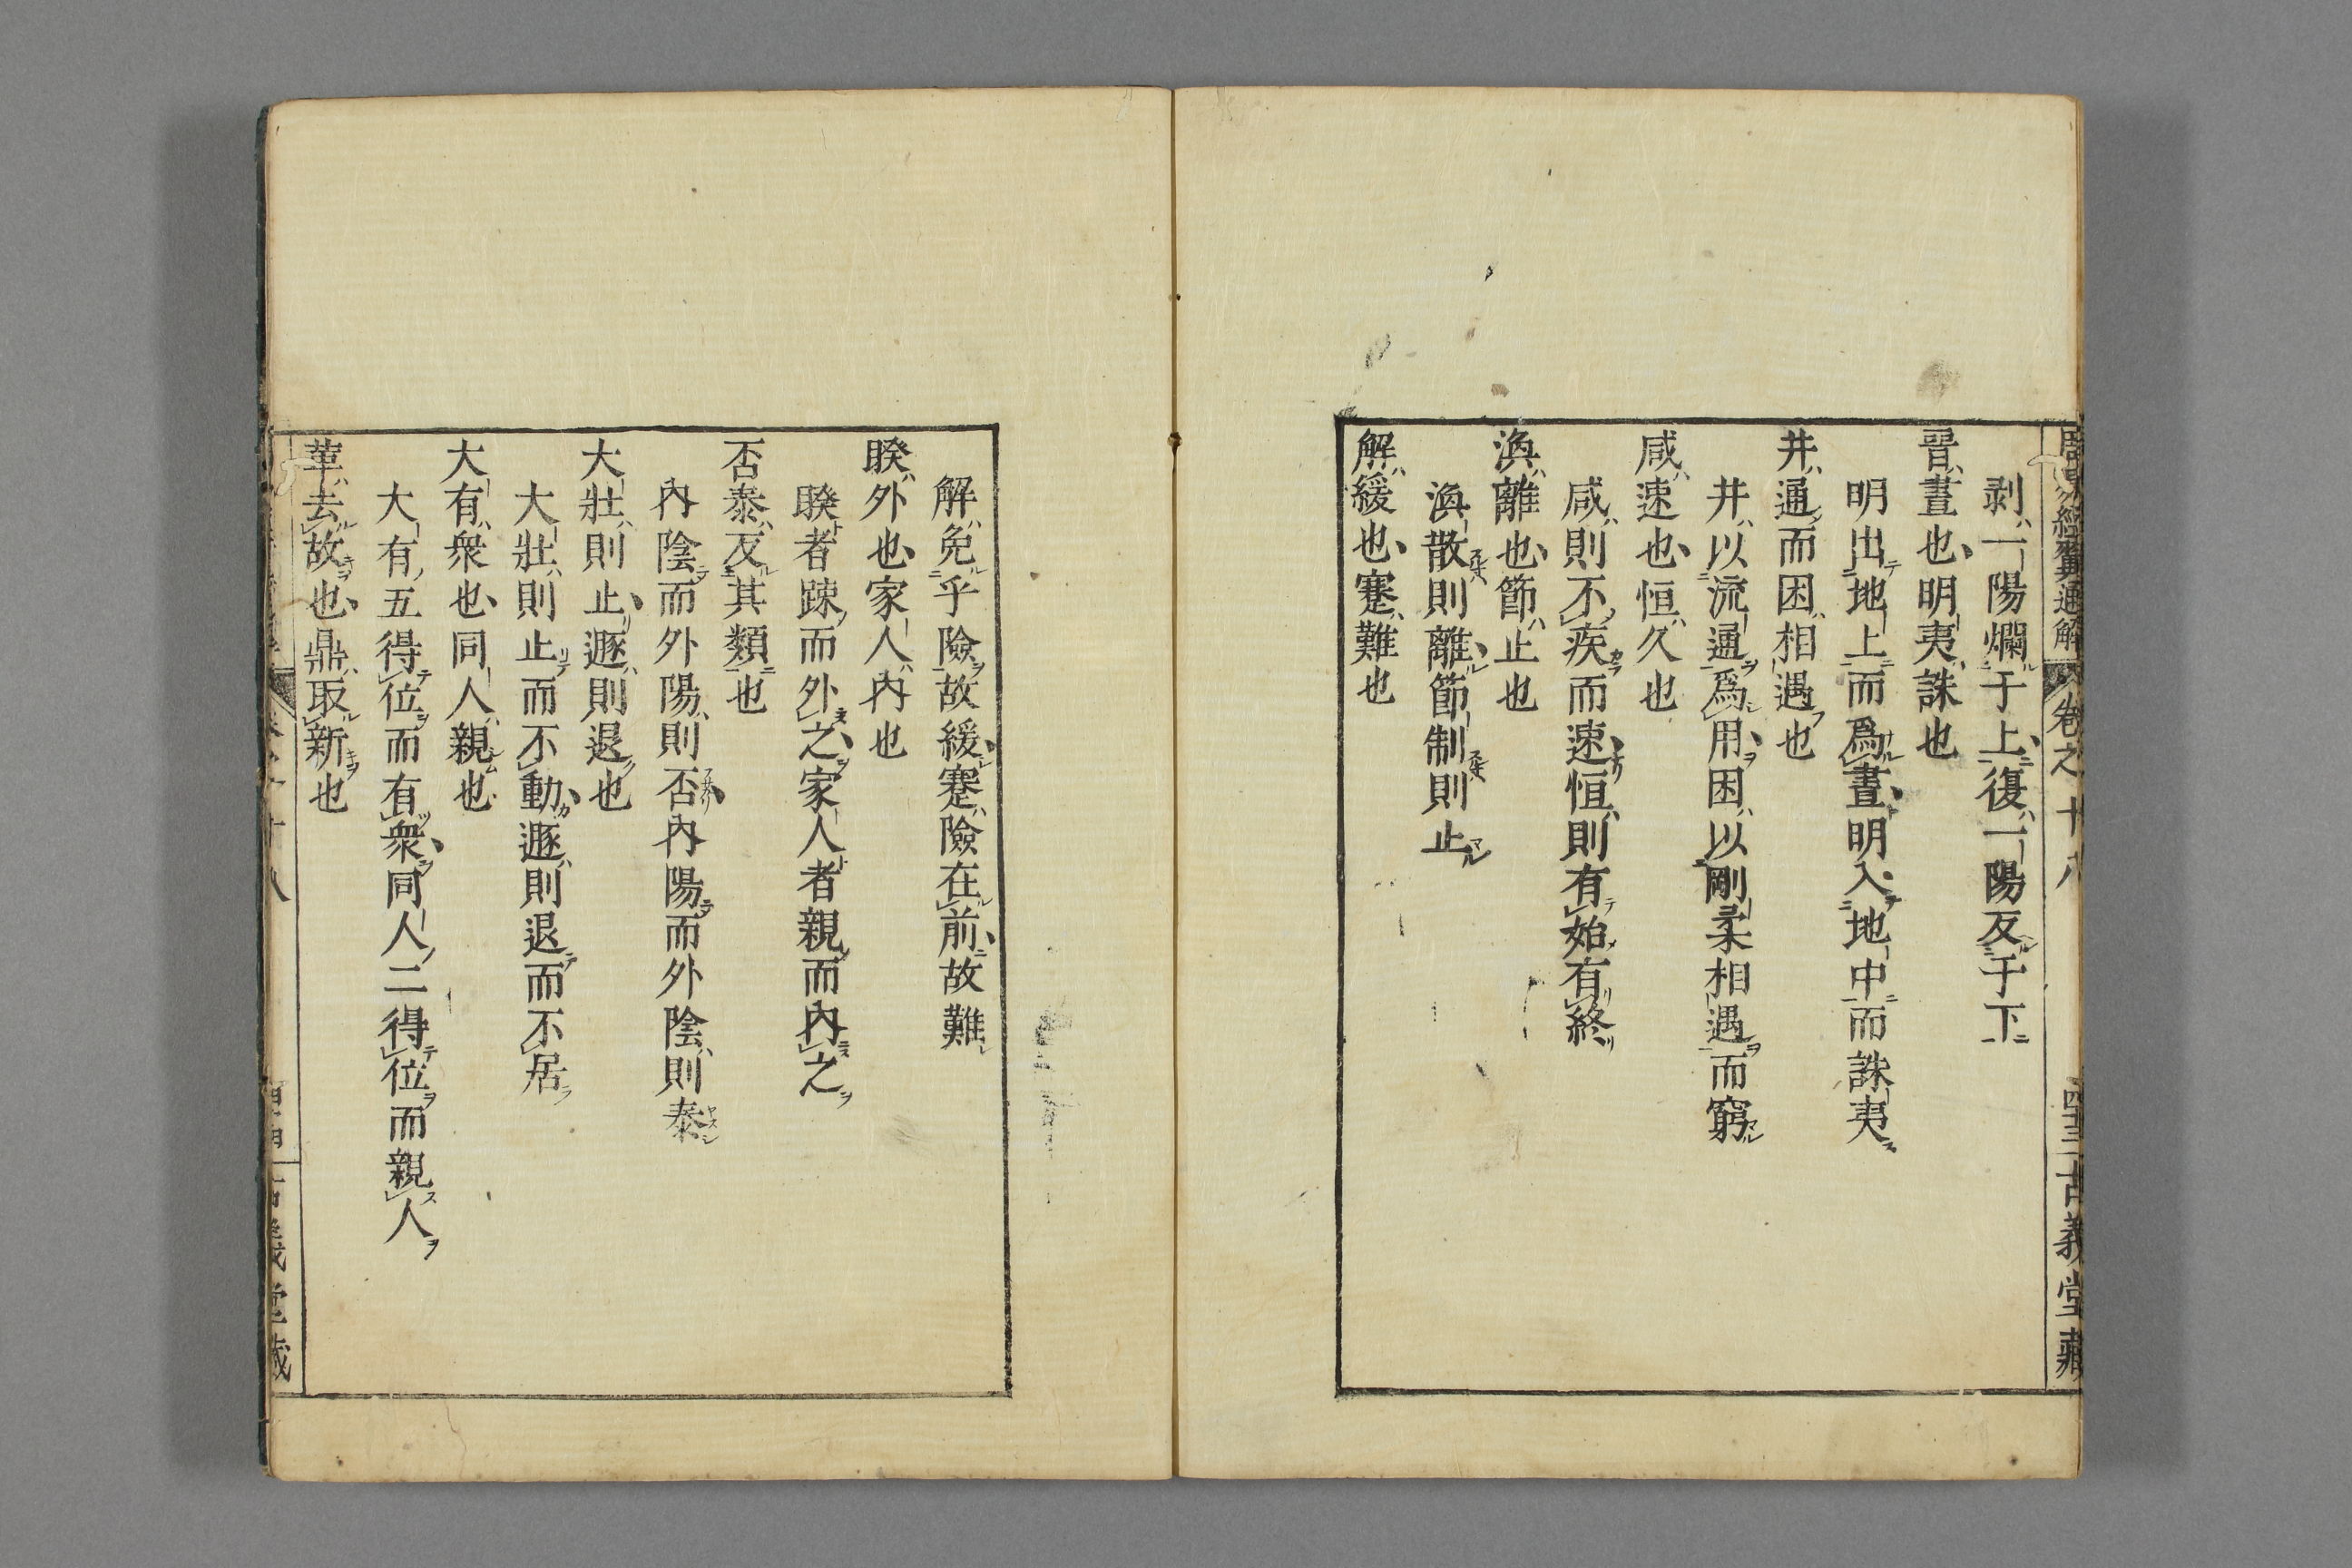 周易經翼通解 卷之十八 四十三 古義堂藏
剥一陽爛于上復一陽反于下
晋晝也明夷誅也
明出地上而爲晝明入地中而誅夷
井通而困相遇也
井以流通爲用困以剛柔相遇而窮
咸速也恒久也
咸則不疾而速恒則有始有終
渙離也節止也
渙散則離節制則止
解緩也蹇難也
解免乎險故緩蹇險在前故難
睽外也家人內也
睽者踈而外之家人者親而內之
否泰反其類也
內陰而外陽則否內陽而外陰則泰
大壯則止遯則退也
大壯則止而不動遯則退而不居
大有衆也同人親也
大有五得位而有衆同人二得位而親人
革去故也鼎取新也